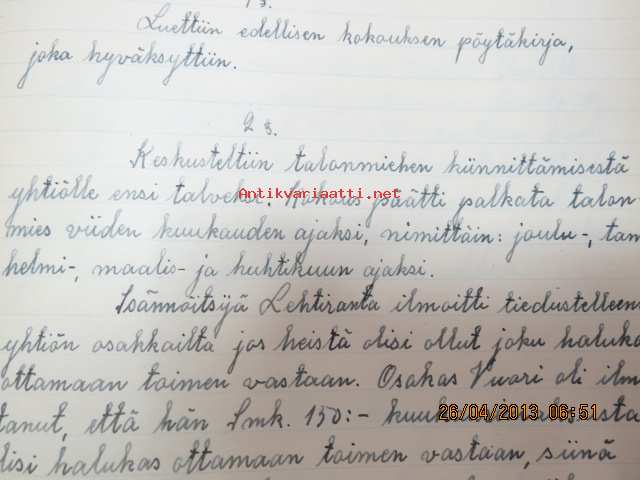 1 §.
Luettiin edellisen kokouksen pöytäkirja,
joka hyväksyttiin.
2 §.
Keskusteltiin talonmiehen kiinnittämisestä
yhtiölle ensi talveksi. Kokous päätti palkata talon-
mies viiden kuukauden ajaksi, nimittäin: joulu-, tam
helmi-, maalis- ja huhtikuun ajaksi.
Antikvariaatti.net
Isännöitsijä Lehtiranta ilmoitti tiedustelleen
yhtiön osakkailta jos heistä olisi ollut joku haluk
ottamaan toimen vastaan. Osakas Vuori oli ilm
tanut, että hän Smk. 150:- kuuk
26/04/2013 06:51
lisi halukas ottamaan toimen vastaan, siinä